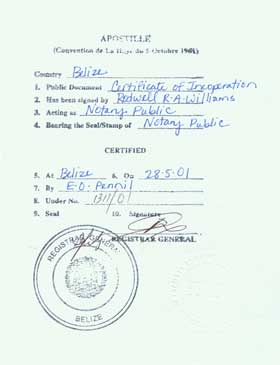 APOSTILLE
(Convention de La Haye du 5 Octobre 1961)
Country Belize
1. Public Document Certificate of Incorporation
2. Has been signed by Rodwell R.A. Williams
3. Acting as Notary Public
4. Bearing the Seal/Stamp of Notary Public
CERTIFIED
5. At Belize 6. On 28-5-01
7. By E.O. Pennil
8. Under No. 1311/01
9. Seal 10. Signature
REGISTRAR GENERAL
REGISTRAR GENERAL
BELIZE